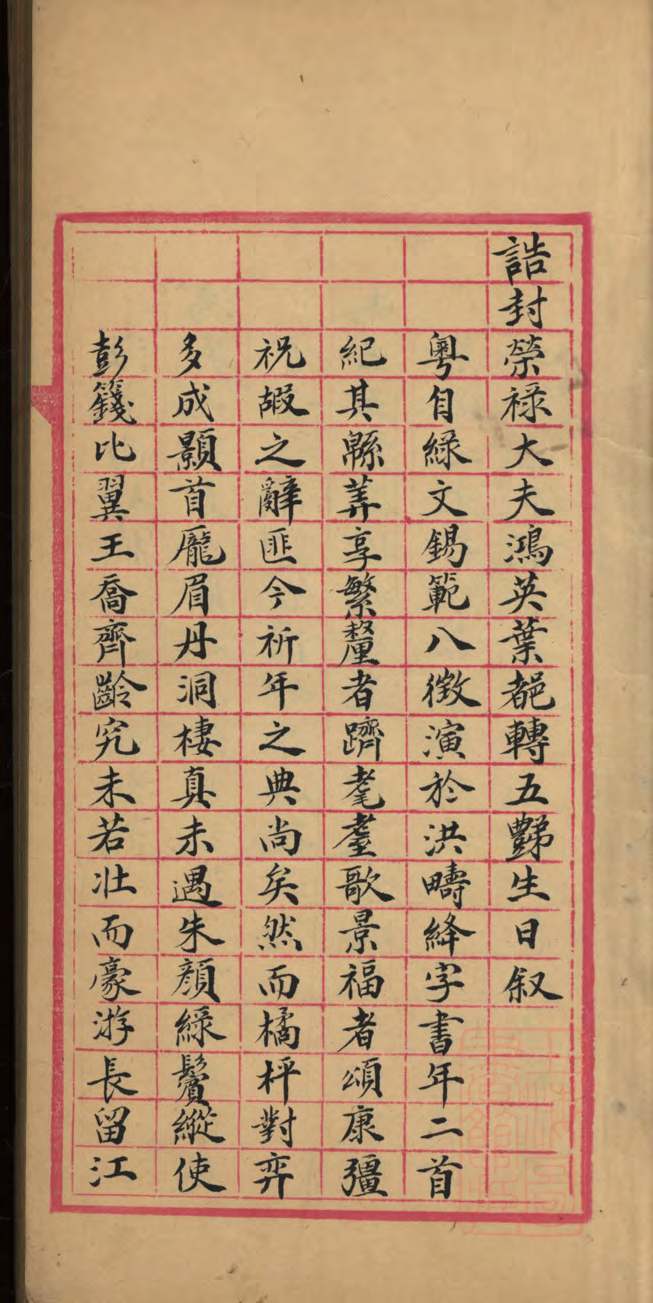 誥封榮祿大夫鴻英葉都轉五豑生日叙
粵自綠文錫範八徵演於洪疇絳字書年二首
紀其緜筭享繁釐者躋耄耋歌景福者頌康彊
祝嘏之辭匪今祈年之典尚矣然而橘枰對弈
多成顥首龎眉丹洞棲真未遇朱顏綠鬢縱使
彭籛比翼王喬齊齡究未若壯而豪游長留江